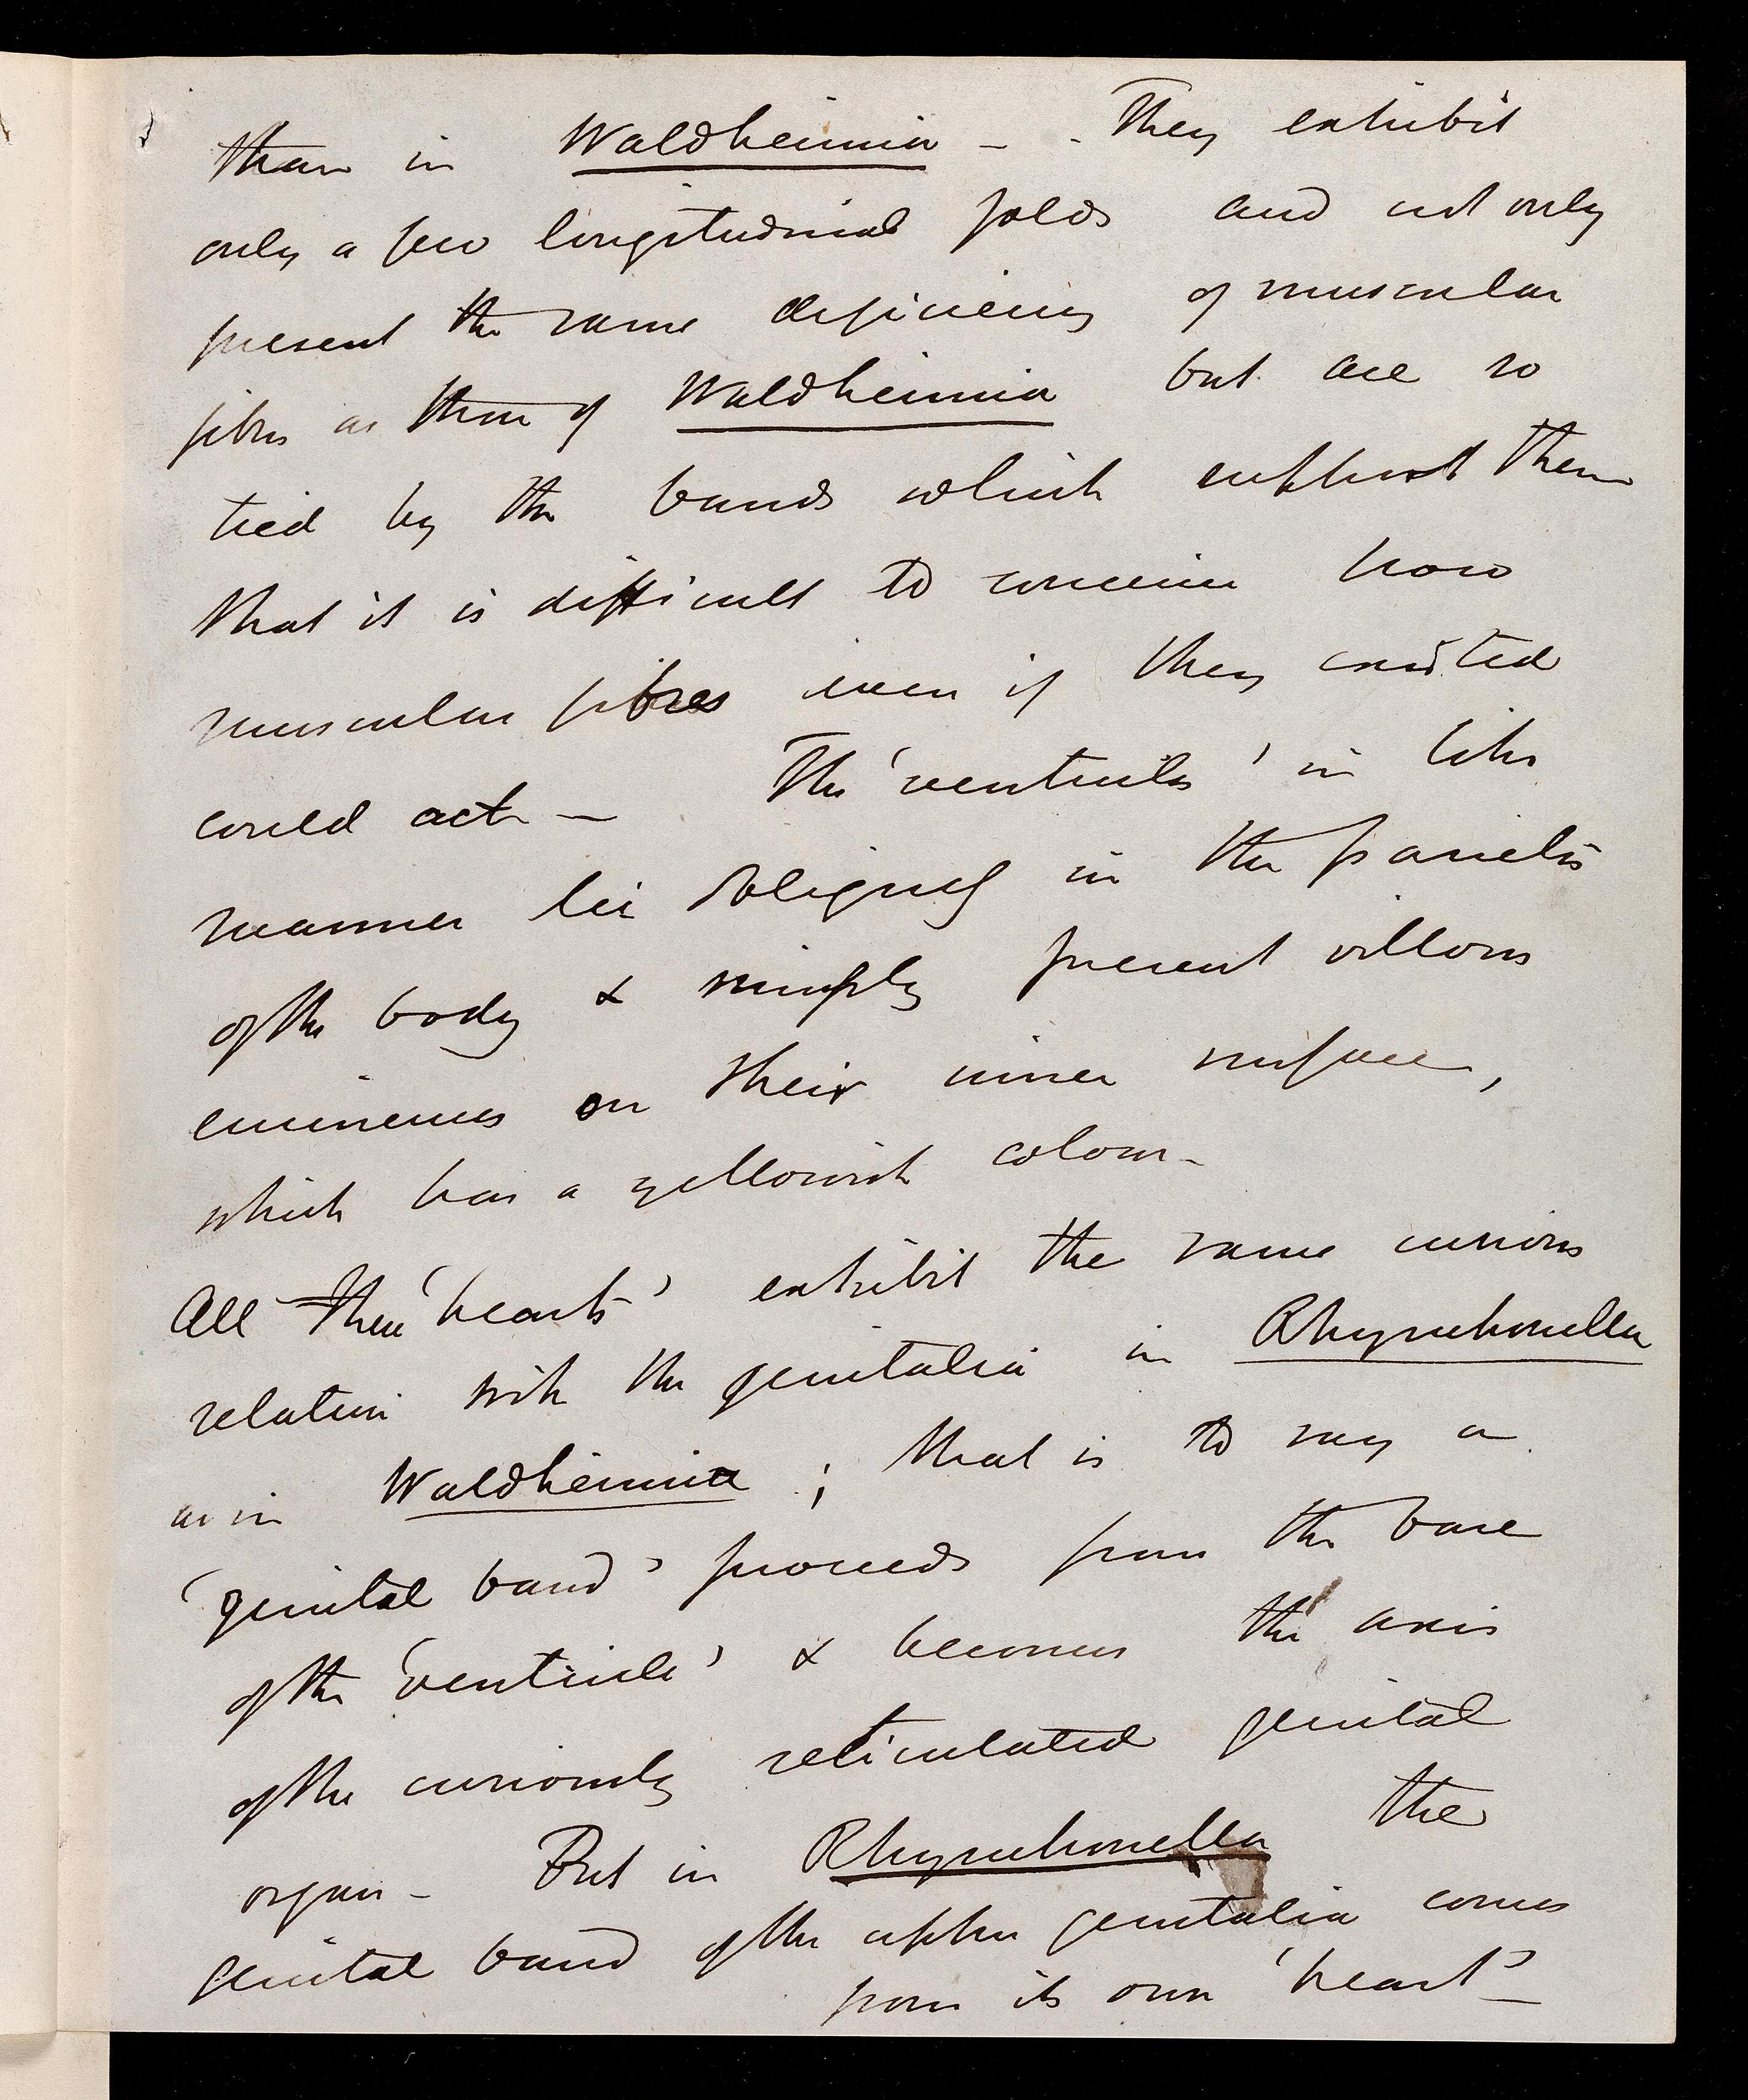 than in Waldheimia - - They exhibit
only a few longitudinal folds and not only
present the same deficiency of muscular
fibres as those of Waldheimia but are so
tied by the bands which support them
that it is difficult to conceive how
muscular fibres even if they existed
could act — The 'ventricles' in like
manner lie obliquely in the parietes
of the body & simply present villous
eminences on their inner surface,
which has a yellowish colour -
All these 'hearts' exhibit the same curious
relation with the genitalia in Rhynchonella
as in Waldheimia ; that is to say a
'genital band' proceeds from the base
of the 'ventricle' & becomes the axis
of the curiously reticulated genital
organ - But in Rhynchonella the
genital band of the upper genitalia comes
from its own 'heart' —